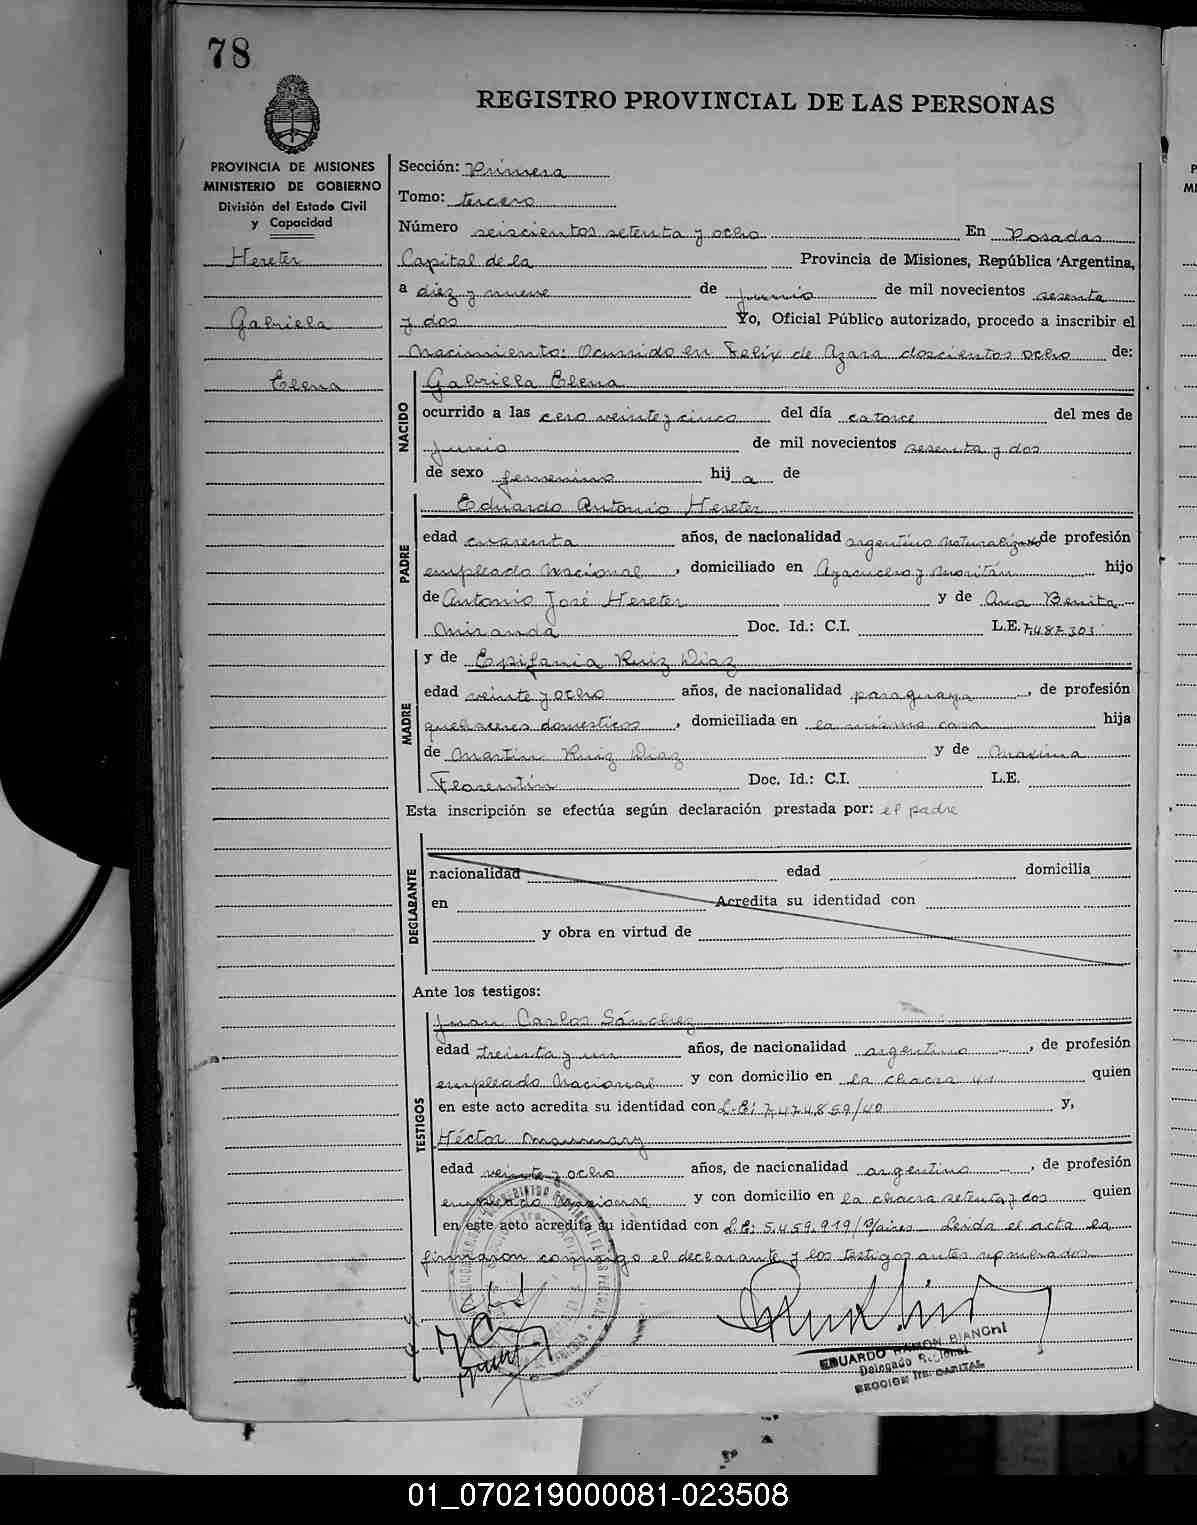 78
REGISTRO PROVINCIAL DE LAS PERSONAS
PROVINCIA DE MISIONES
MINISTERIO DE GOBIERNO
División del Estado Civil
y Capacidad
Hereter
Gabriela
Elena
Sección: Primera
Tomo: tercero
Número seiscientos setenta y ocho En Posadas
Capital de la Provincia de Misiones, República Argentina,
a diez y nueve de junio de mil novecientos sesenta
y dos Yo, Oficial Público autorizado, procedo a inscribir el
Nacimiento: Ocurrido en Felix de Azara doscientos ocho de:
NACIDO
Gabriela Elena
ocurrido a las cero veinte y cinco del día catorce del mes de
junio de mil novecientos sesenta y dos
de sexo femenino hij a de
PADRE
Eduardo Antonio Hereter
edad cuarenta años, de nacionalidad argentino naturalizado de profesión
empleado Nacional, domiciliado en Ayacucho y Moritán hijo
de Antonio José Hereter y de Ana Benita
Miranda Doc. Id.: C.I. L.E. 7.487.303
MADRE
y de Epifania Ruiz Diaz
edad veinte y ocho años, de nacionalidad paraguaya, de profesión
quehaceres domesticos, domiciliada en la misma casa hija
de Martín Ruiz Diaz y de Maxima
Florentín Doc. Id.: C.I. L.E.
Esta inscripción se efectúa según declaración prestada por: el padre
DECLARANTE
nacionalidad edad domicilia
en Acredita su identidad con
y obra en virtud de
Ante los testigos:
TESTIGOS
Juan Carlos Sánchez
edad treinta y un años, de nacionalidad argentino, de profesión
empleado Nacional y con domicilio en la chacra 41 quien
en este acto acredita su identidad con L.E: 7.474.859/40 y,
Héctor
edad veinte y ocho años, de nacionalidad argentino, de profesión
empleado Nacional y con domicilio en la chacra setenta y dos quien
en este acto acredita su identidad con L.E: 5.459.919/B/aires Leida el acta la
firmaron conmigo el declarante y los testigos antes nombrados
EDUARDO RAMON BIANCHI
Delegado Regional
SECCION 1ra. CAPITAL
01_070219000081-023508